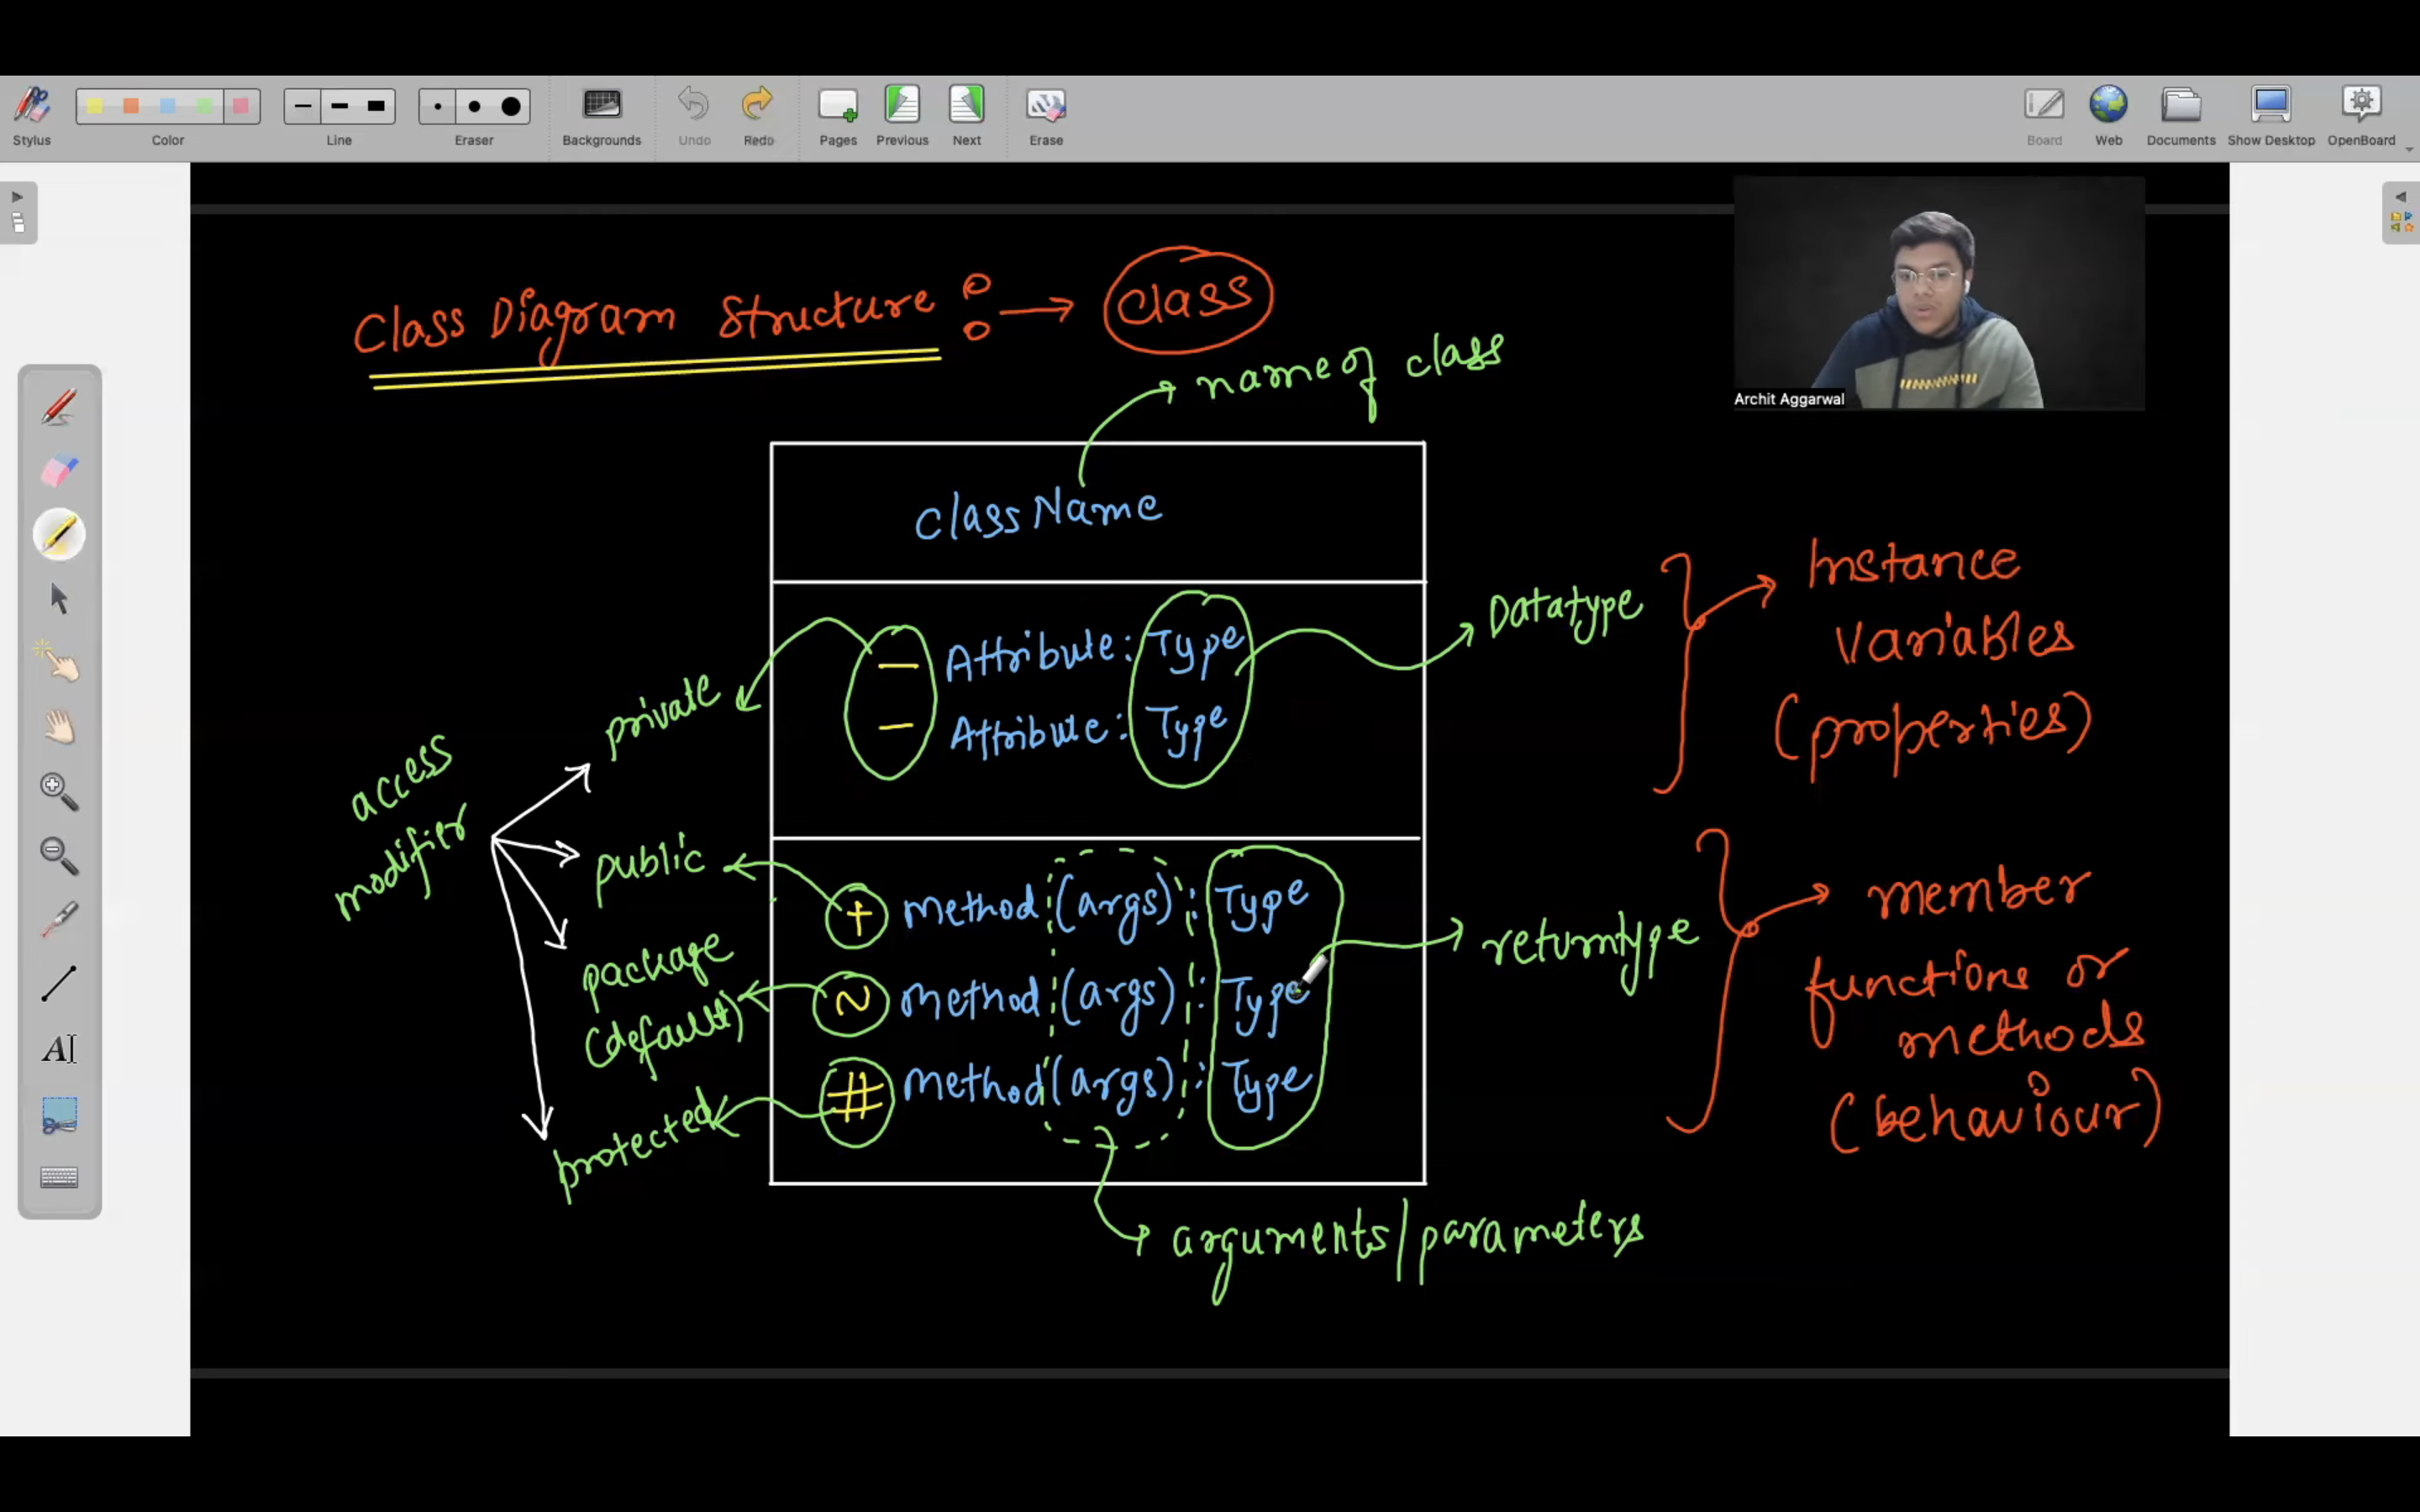 Stylus
Color
Line
Eraser
Backgrounds
Undo
Redo
Pages
Previous
Next
Erase
Board
Web
Documents
Show Desktop
OpenBoard
Class Diagram Structure : → class
name of class
Archit Aggarwal
className
- Attribute: Type
- Attribute: Type
Datatype
Instance
Variables
(properties)
access
modifier
private
public
package
(default)
protected
+ method (args) : Type
~ method (args) : Type
# method (args) : Type
returntype
member
functions or
methods
(behaviour)
arguments/parameters
AI